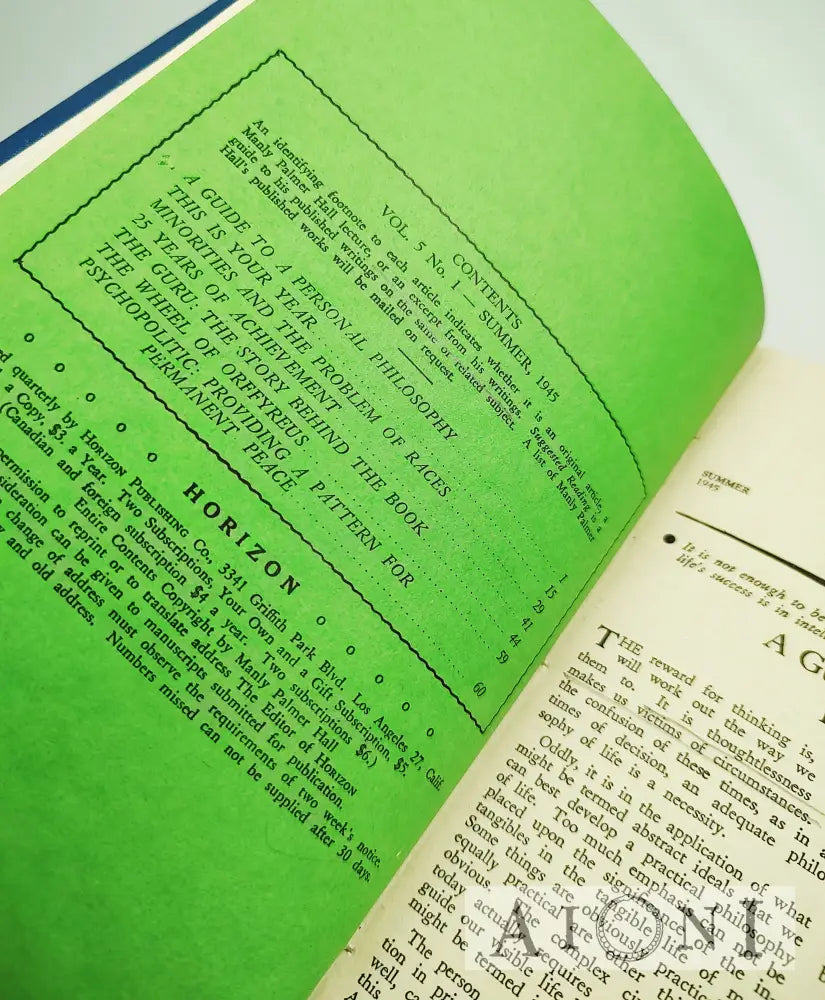 CONTENTS
VOL. 5 No. 1 — SUMMER, 1945
An identifying footnote to each article indicates whether it is an original article, a
Manly Palmer Hall lecture, or an excerpt from his writings. Suggested Reading is a
guide to his published writings on the same or related subject. A list of Manly Palmer
Hall's published works will be mailed on request.
A GUIDE TO A PERSONAL PHILOSOPHY 1
THIS IS YOUR YEAR 15
MINORITIES AND THE PROBLEM OF RACES 29
25 YEARS OF ACHIEVEMENT 41
THE GURU: THE STORY BEHIND THE BOOK 44
THE WHEEL OF ORFFYREUS 59
PSYCHOPOLITIC: PROVIDING A PATTERN FOR
PERMANENT PEACE 60
HORIZON
quarterly by HORIZON PUBLISHING CO., 3341 Griffith Park Blvd. Los Angeles 27, Calif.
a Copy, $3. a Year. Two Subscriptions, Your Own and a Gift Subscription, $5.
(Canadian and foreign subscription $4 a year. Two subscriptions $6.)
Entire Contents Copyright by Manly Palmer Hall
permission to reprint or to translate address The Editor of HORIZON
can be given to manuscripts submitted for publication.
change of address must observe the requirements of two week's notice.
and old address. Numbers missed can not be supplied after 30 days.
SUMMER
1945
It is not enough to be
life's success is in
A
THE reward for thinking is,
will work out the way we
them to. It is thoughtlessness
makes us victims of circumstances.
the confusion of these times, as in
times of decision, an adequate
sophy of life is a necessity.
Oddly, it is in the application of what
might be termed abstract ideals that we
can best develop a practical philosophy
of life. Too much emphasis can not be
placed upon the significance of the
tangibles in the tangible life of
Some things are obviously
equally practical are other
obvious. The complex
today actually requires
guide our visible life
might be termed
The person
tion in
well,
this
AIONI